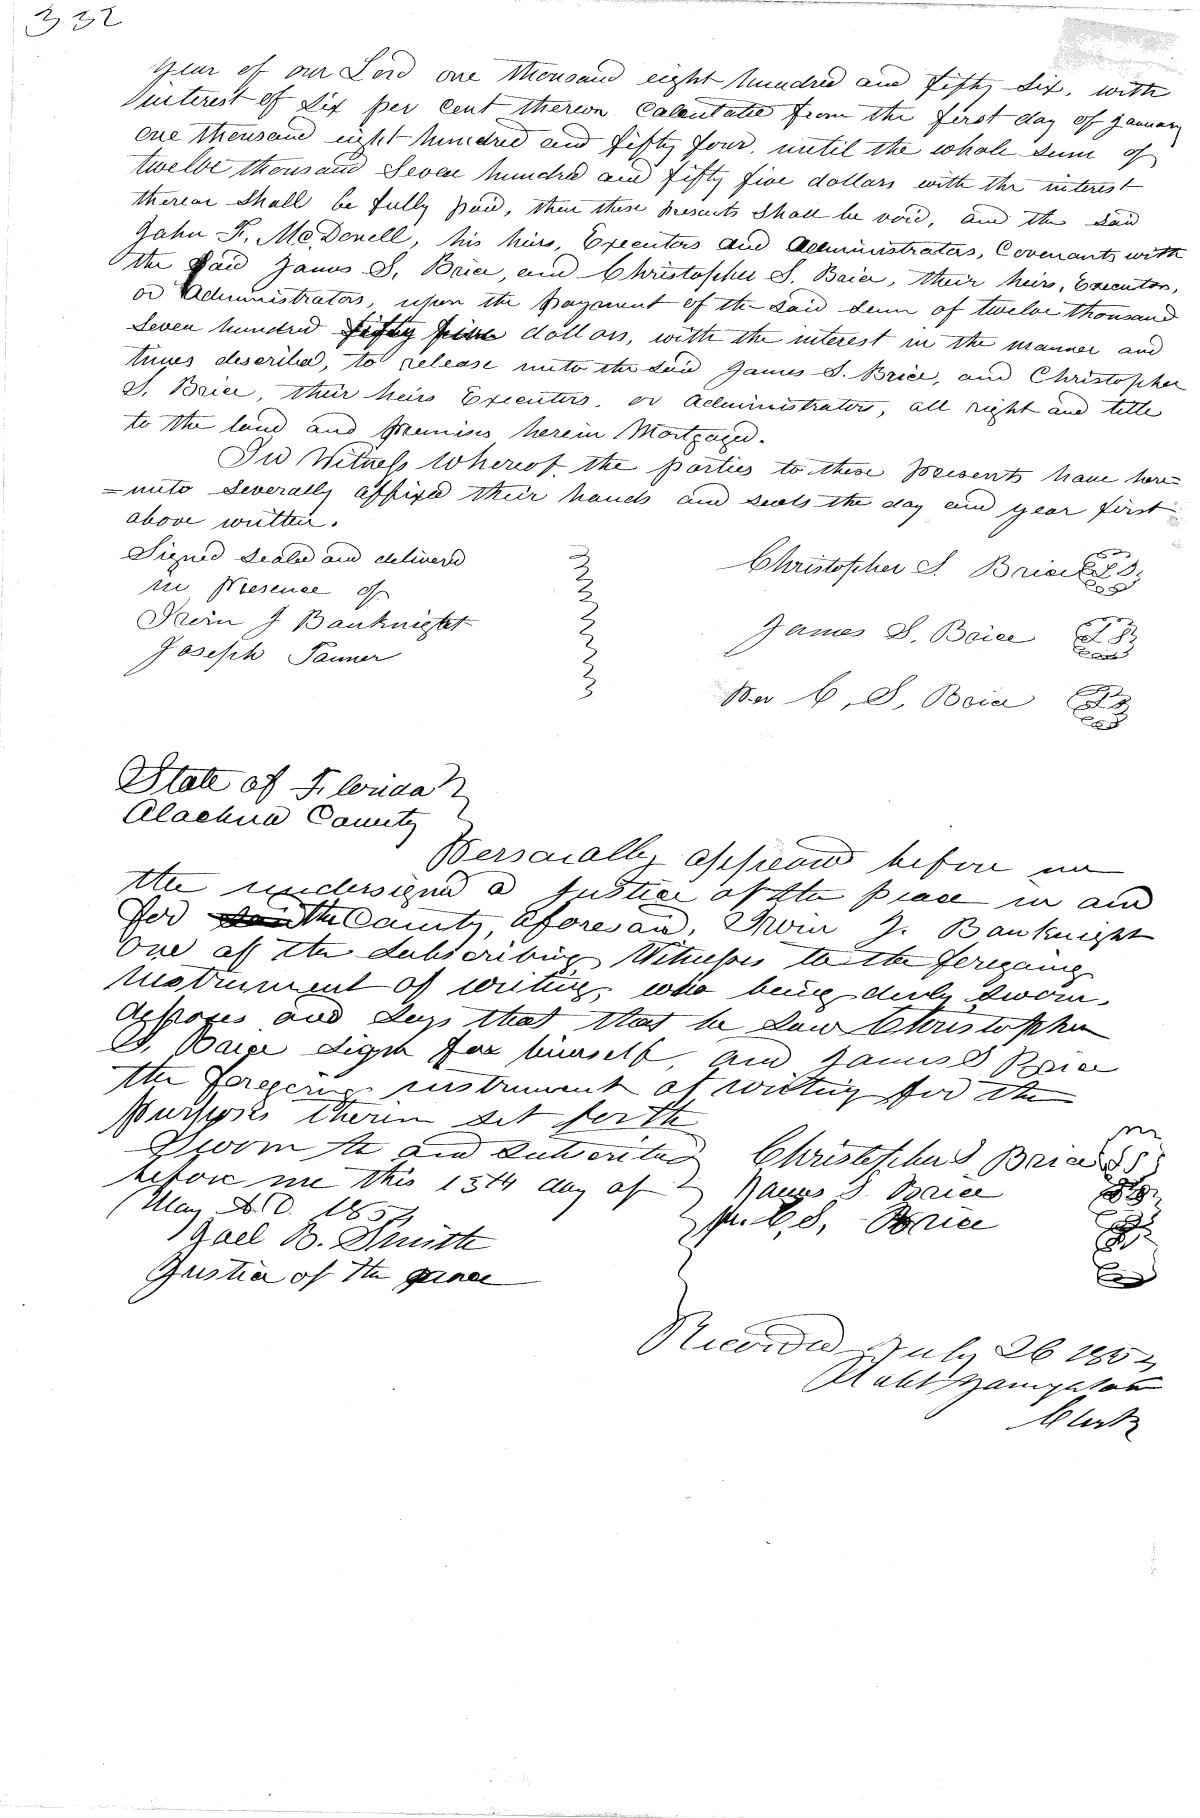 332
year of our Lord one thousand eight hundred and fifty six, with
interest of six per cent thereon Calculated from the first day of January
one thousand eight hundred and fifty four, until the whole sum of
twelve thousand Seven hundred and fifty five dollars with the interest
thereon shall be fully paid, then these presents shall be void, and the said
John F. McDonell, his heirs, Executors and Administrators, Covenants with
the said James S. Brice, and Christopher S. Brice, their heirs, Executors,
or Administrators, upon the payment of the said sum of twelve thousand
Seven hundred fifty five dollars, with the interest in the manner and
times described, to release unto the said James S. Brice, and Christopher
S. Brice, their heirs Executors, or Administrators, all right and title
to the land and premises herein Mortgaged.
In Witness Whereof the parties to these presents have here=
=unto severally affixed their hands and seals the day and year first
above written.
Signed sealed and delivered
in presence of
Irvin J Bauknight
Joseph Tanner
Christopher S. Brice L.S.
James S. Brice L.S.
Per C. S. Brice L.S.
State of Florida
Alachua County
Personally appeared before me
the undersigned a Justice of the Peace in and
for said the County aforesaid, Irvin J. Bauknight
one of the Subscribing Witnesses to the foregoing
instrument of writing, who being duly sworn,
deposes and Says that that he saw Christopher
S. Brice sign for himself, and James S Brice
the foregoing instrument of writing for the
purposes therein set forth
Sworn to and subscribed
before me this 15th day of
May A.D. 1854
B. Smith
Justice of the peace
Christopher S. Brice LS
James S. Brice
Per C. S. Brice
Recorded July 26 1854
Clerk